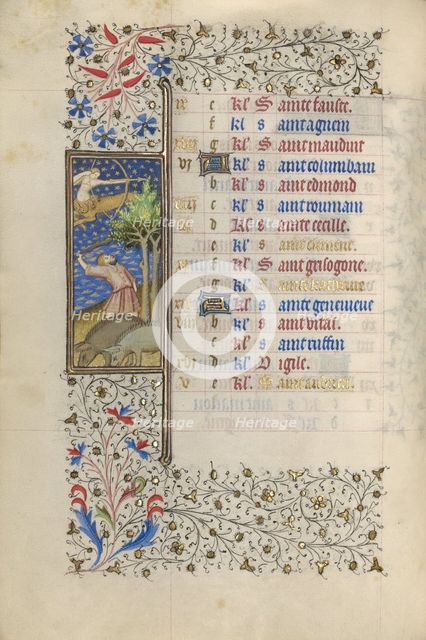 e kl Sainte fauste.
f kl saint agnien
g kl Saint maudunt
vj A kl saint columbain
b kl saint edmond
c kl saint roumain
d kl sainte cecille.
e kl saint clement
f kl Saint grisogone.
g kl sainte katherine
A kl sainte geneueue
b kl saint vital.
c kl saint ruffin
d kl Vigile.
v e kl Saint andrieu
Heritage Heritage
Heritage Heritage
Heritage Heritage